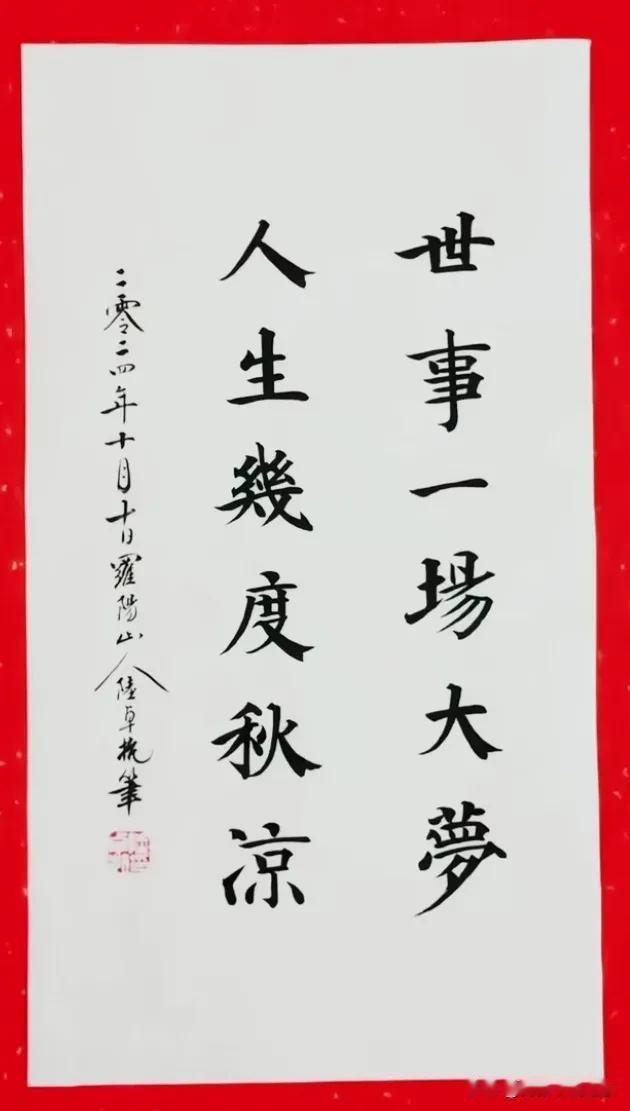 世事一場大夢
人生幾度秋凉
二零二四年十月十日羅陽山人陸卓撓筆